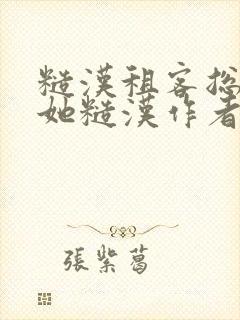 糙漢租客總
她糙漢作者
張紫葛